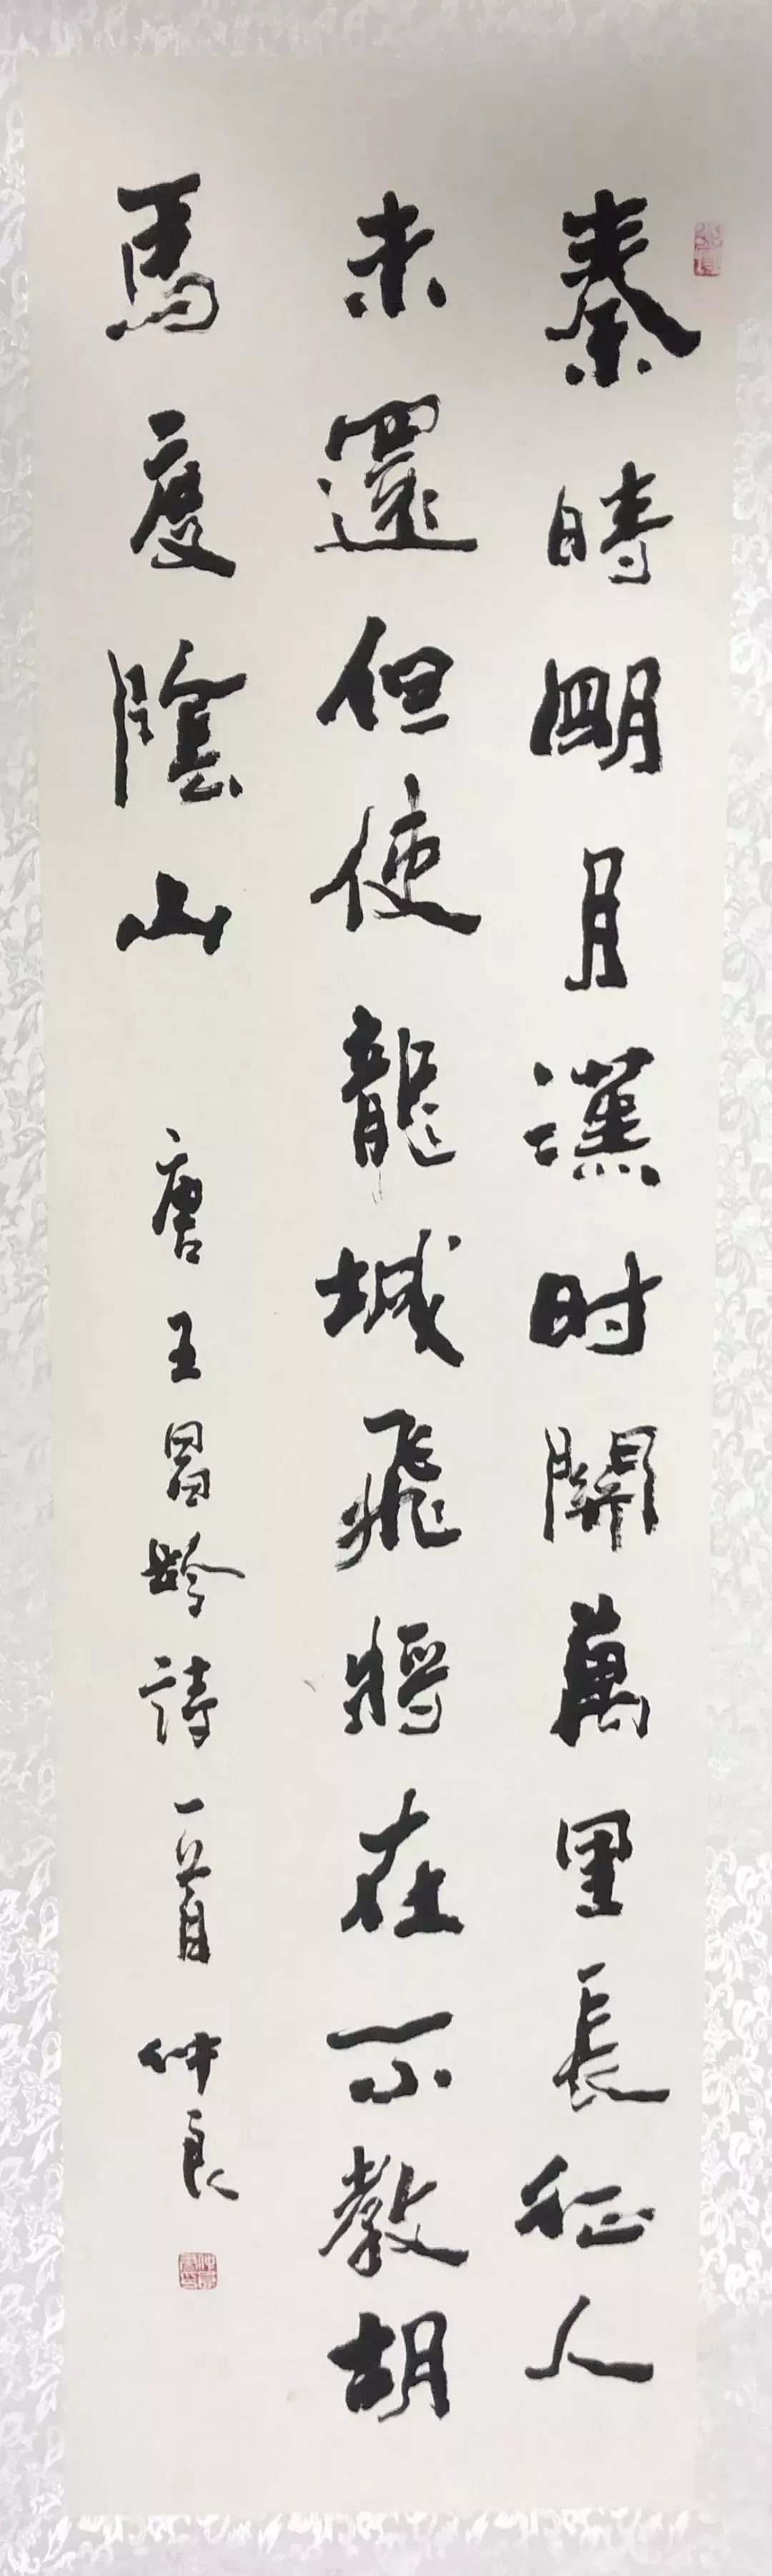 秦時明月漢时關萬里長征人
未還但使龍城飛將在不教胡
馬度陰山 唐王昌齡詩一首 仲良